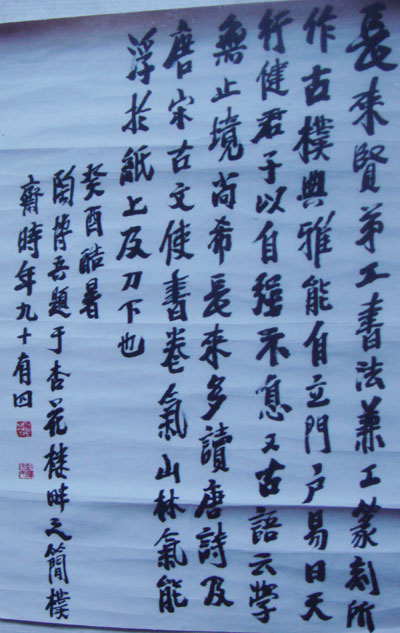 長来賢弟工書法兼工篆刻所
作古樸典雅能自立門户易曰天
行健君子以自強不息又古語云学
無止境尚希長来多讀唐詩及
唐宋古文使書卷氣山林氣能
浮於紙上及刀下也
癸酉酷暑
陶博吾題于杏花樓畔之簡樸
齋時年九十有四